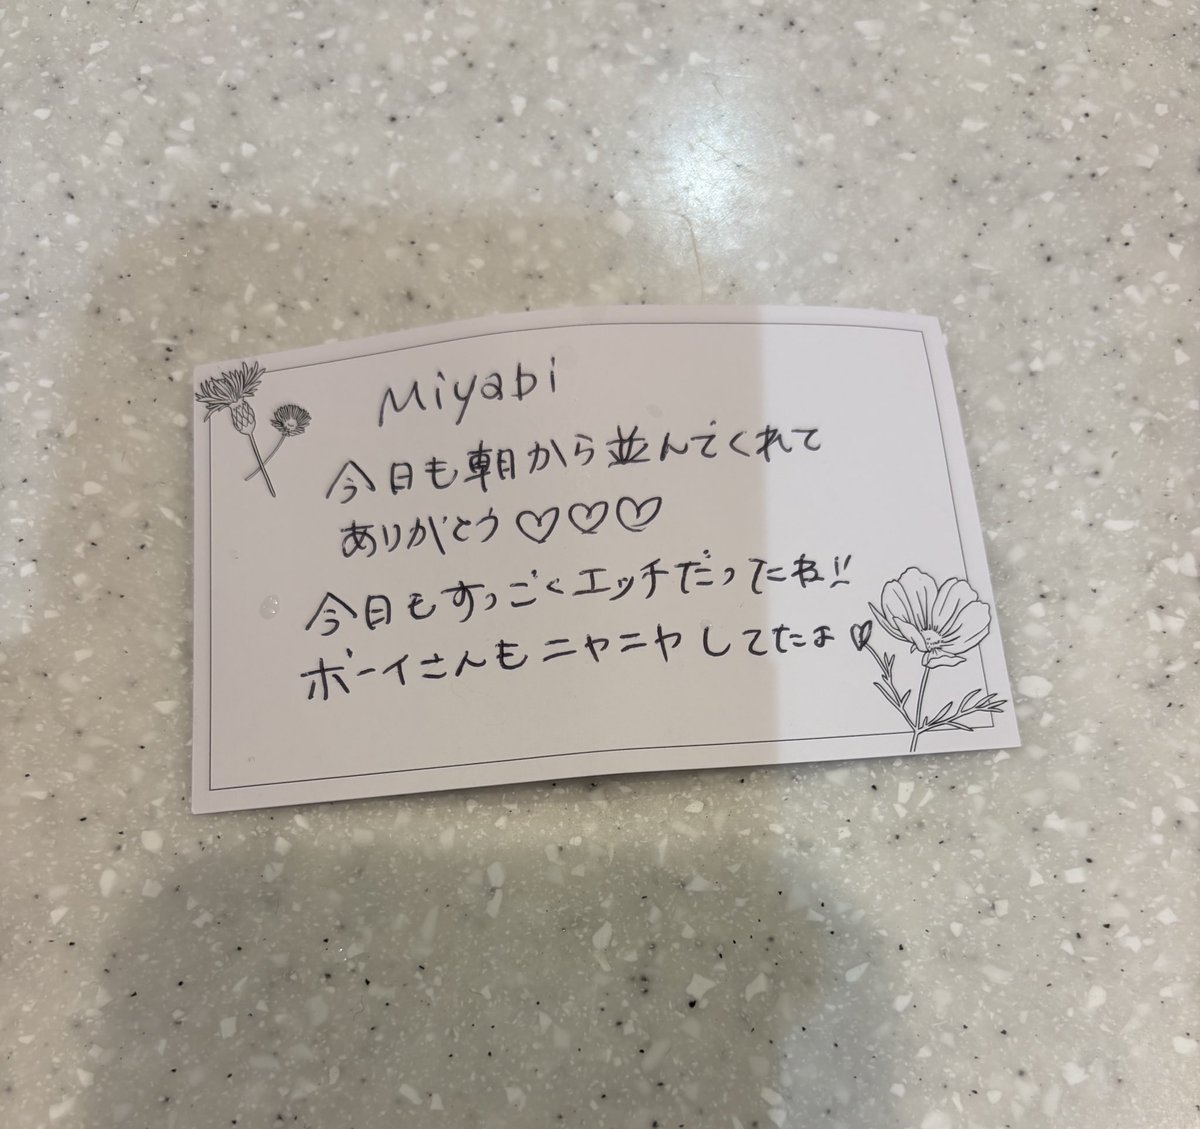 Miyabi
今日も朝から並んでくれて
ありがとう♡♡♡
今日もすっごくエッチだったね!!
ボーイさんもニヤニヤしてたよ♡